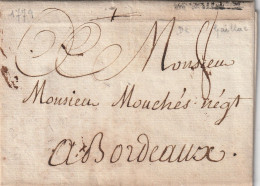 1779
7
DE Gaillac
Monsieur
Monsieur Mouchés négt
A Bordeaux.